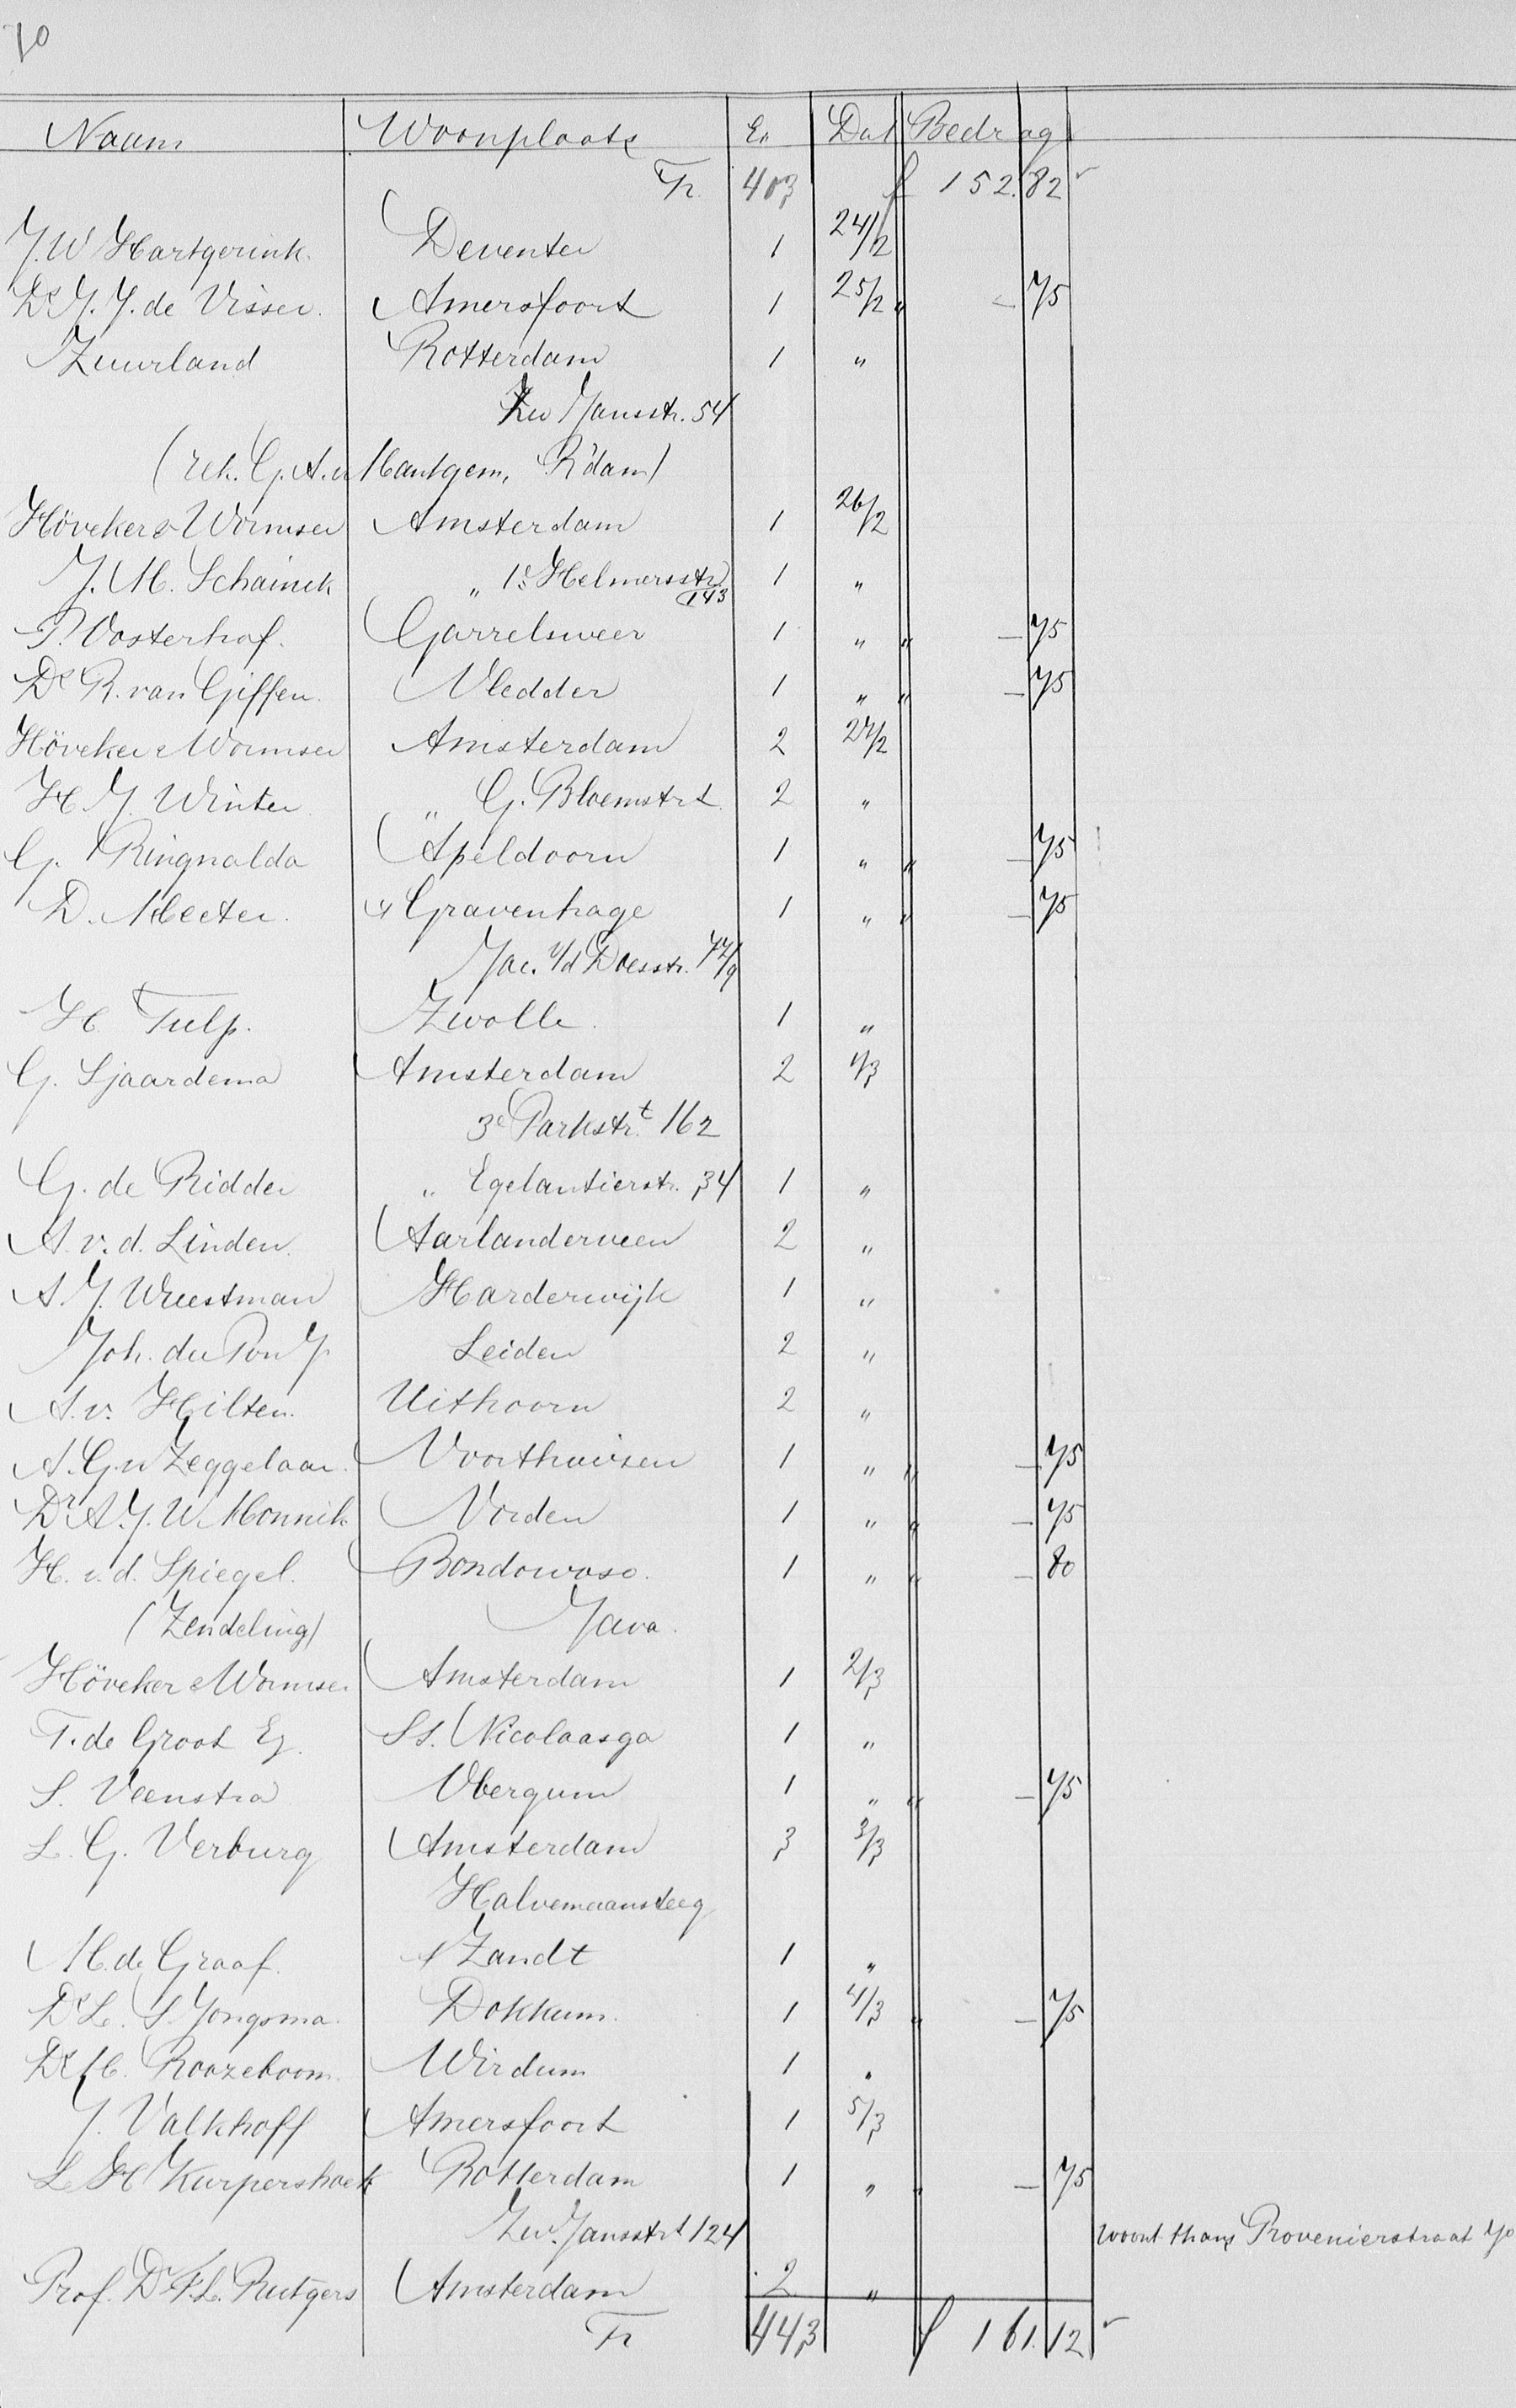 70
Naam Woonplaats Ex Dat Bedrag
Tr. 403 f 152.82
J. W Hartgerink. Deventer 1 24/2
Ds J. J. de Visser. Amersfoort 1 25/2 " – 75
Zuurland Rotterdam 1 "
Zw Jansstr. 54
(rek. G. A. v Mantgem, R'dam)
Höveker & Wormser Amsterdam 1 26/2
J. M. Schainck " 1e Helmersstr. 143 1 "
P. Oosterhof. Garrelsweer 1 " " – 75
Ds R. van Giffen. Vledder 1 " " – 75
Höveker & Wormser Amsterdam 2 27/2
H J. Winter " G. Bloemstrt 2 "
G. Ringnalda Apeldoorn 1 " " – 75
D. Meeter. 's Gravenhage 1 " " – 75
Jac. v/d Doesstr. 77/9
H. Tulp. Zwolle. 1 "
G. Sjaardema Amsterdam 2 1/3
3e Parkstrt 162
G. de Ridder " Egelantierstr. 34 1 "
A. v. d. Linden. Aarlanderveen 2 "
A. J. Wreestman Harderwijk 1 "
Joh. du Pon Jr Leiden 2 "
A. v. Hilten. Uithoorn 2 "
A. G. v Zeggelaar. Voorthuizen 1 " " – 75
Dr A. J. W. Monnik Vorden 1 " " – 75
H. v. d. Spiegel. Bondowoso. 1 " " – 80
(Zendeling) Java.
Höveker & Wormser Amsterdam 1 2/3
T. de Groot Ez. St. Nicolaasga 1 "
S. Veenstra Bergum 1 " " – 75
L. G. Verburg Amsterdam 3 3/3
Halvemaansteeg
M. de Graaf. 't Zandt 1 "
Ds L. S. Jongsma. Dokkum. 1 4/3 " – 75
Ds M. Roozeboom. Wirdum 1 "
J. Valkhoff Amersfoort 1 5/3
L H Kurpershoek Rotterdam 1 " " – 75
Zw. Jansstrt 124 woont thans Provenierstraat 70
Prof. Dr F. L. Rutgers Amsterdam 2 "
Tr 443 f 161.12